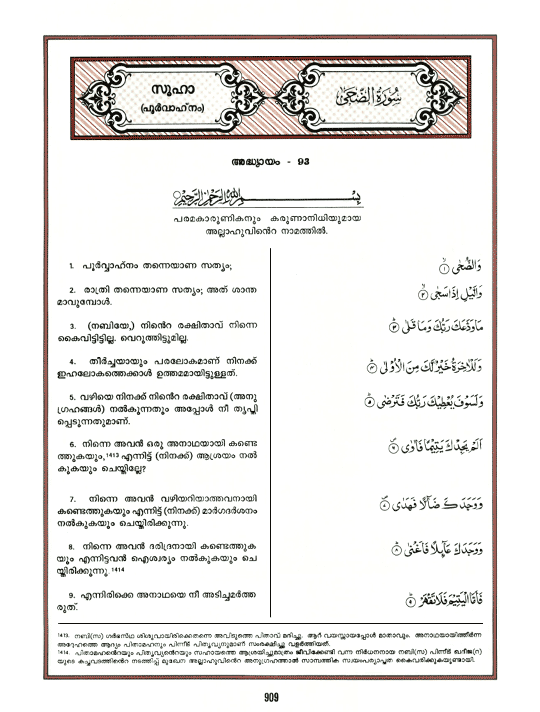 സൂഹാ
(പൂർവാഹ്നം)
سُورَةُ الضُّحَىٰ
അദ്ധ്യായം - 93
بِسْمِ اللَّهِ الرَّحْمَٰنِ الرَّحِيمِ
പരമകാരുണികനും കരുണാനിധിയുമായ
അല്ലാഹുവിൻെറ നാമത്തിൽ.
1. പൂർവ്വാഹ്നം തന്നെയാണ സത്യം;
وَالضُّحَىٰ ١
2. രാത്രി തന്നെയാണ സത്യം; അത് ശാന്ത
മാവുമ്പോൾ.
وَالَّيْلِ إِذَا سَجَىٰ ٢
3. (നബിയേ,) നിൻെറ രക്ഷിതാവ് നിന്നെ
കൈവിട്ടിട്ടില്ല. വെറുത്തിട്ടുമില്ല.
مَا وَدَّعَكَ رَبُّكَ وَمَا قَلَىٰ ٣
4. തീർച്ചയായും പരലോകമാണ് നിനക്ക്
ഇഹലോകത്തെക്കാൾ ഉത്തമമായിട്ടുള്ളത്.
وَلَلْآخِرَةُ خَيْرٌ لَكَ مِنَ الْأُولَىٰ ٤
5. വഴിയെ നിനക്ക് നിൻെറ രക്ഷിതാവ് (അനു
ഗ്രഹങ്ങൾ) നൽകുന്നതും അപ്പോൾ നീ തൃപ്തി
പ്പെടുന്നതുമാണ്.
وَلَسَوْفَ يُعْطِيكَ رَبُّكَ فَتَرْضَىٰ ٥
6. നിന്നെ അവൻ ഒരു അനാഥയായി കണ്ടെ
ത്തുകയും,1413 എന്നിട്ട് (നിനക്ക്) ആശ്രയം നൽ
കുകയും ചെയ്തില്ലേ?
أَلَمْ يَجِدْكَ يَتِيمًا فَآوَىٰ ٦
7. നിന്നെ അവൻ വഴിയറിയാത്തവനായി
കണ്ടെത്തുകയും എന്നിട്ട് (നിനക്ക്) മാർഗദർശനം
നൽകുകയും ചെയ്തിരിക്കുന്നു.
وَوَجَدَكَ ضَالًّا فَهَدَىٰ ٧
8. നിന്നെ അവൻ ദരിദ്രനായി കണ്ടെത്തുക
യും എന്നിട്ടവൻ ഐശ്വര്യം നൽകുകയും ചെ
യ്തിരിക്കുന്നു.1414
وَوَجَدَكَ عَائِلًا فَأَغْنَىٰ ٨
9. എന്നിരിക്കെ അനാഥയെ നീ അടിച്ചമർത്ത
രുത്.
فَأَمَّا الْيَتِيمَ فَلَا تَقْهَرْ ٩
1413. നബി(സ) ഗർഭസ്ഥ ശിശുവായിരിക്കെത്തന്നെ അവിടുത്തെ പിതാവ് മരിച്ചു. ആറ് വയസ്സായപ്പോൾ മാതാവും. അനാഥയായിത്തീർന്ന
അദ്ദേഹത്തെ ആദ്യം പിതാമഹനും പിന്നീട് പിതൃവ്യനുമാണ് സംരക്ഷിച്ചു വളർത്തിയത്.
1414. പിതാമഹൻെറയും പിതൃവ്യൻെറയും സഹായത്തെ ആശ്രയിച്ചുമാത്രം ജീവിക്കേണ്ടി വന്ന നിർധനനായ നബി(സ) പിന്നീട് ഖദീജ(റ)
യുടെ കച്ചവടത്തിൻെറ നടത്തിപ്പ് മുഖേന അല്ലാഹുവിൻെറ അനുഗ്രഹത്താൽ സാമ്പത്തിക സ്വയംപര്യാപ്തത കൈവരിക്കുകയുണ്ടായി.
909